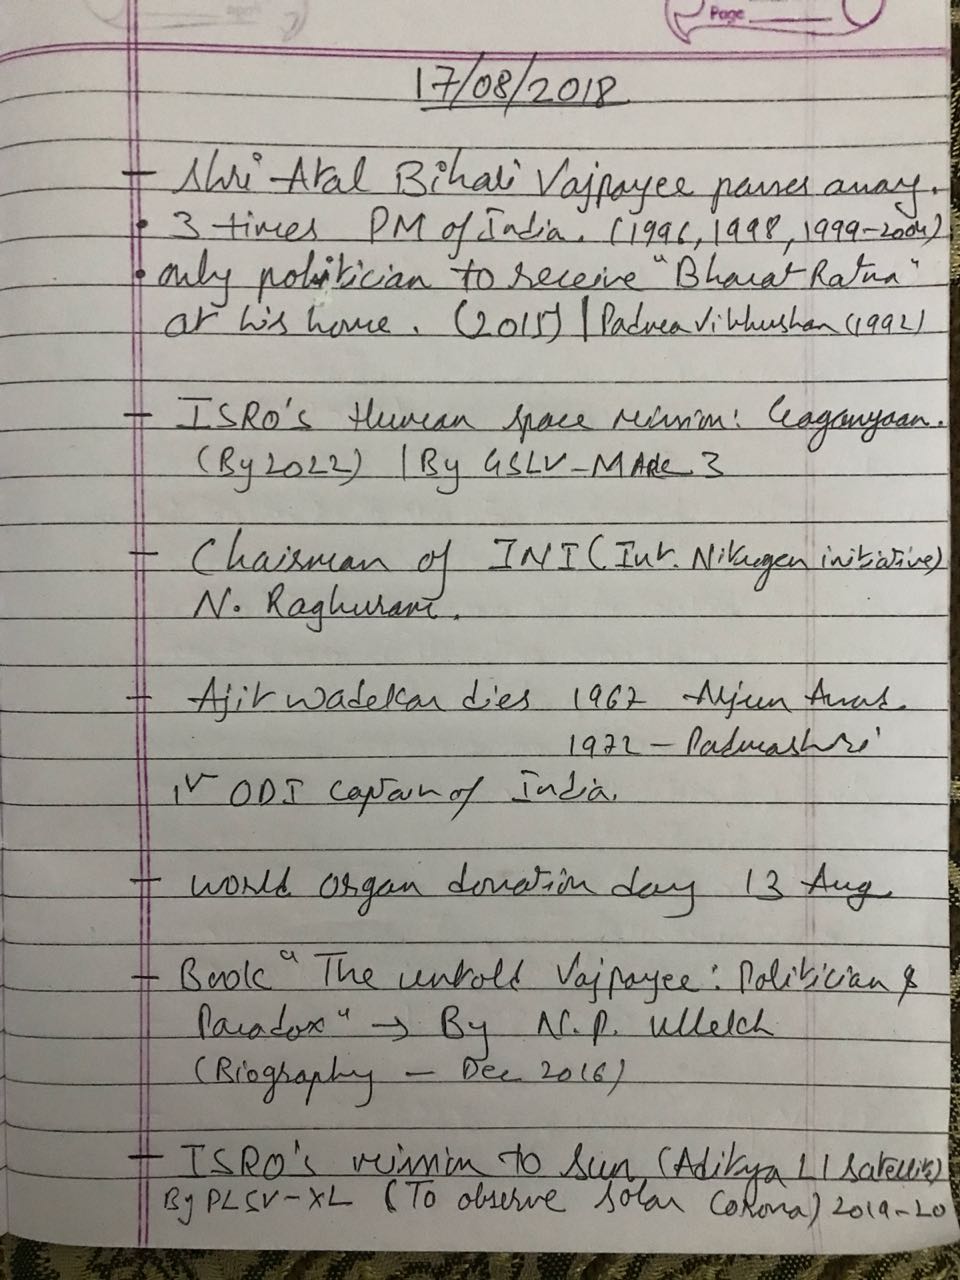 Page
17/08/2018
– Shri Atal Bihari Vajpayee passes away.
• 3 times PM of India. (1996, 1998, 1999-2004)
• only politician to receive "Bharat Ratna"
at his home. (2015) | Padma Vibhushan (1992)
– ISRO's Human space mission: Gaganyaan.
(By 2022) | By GSLV-MARK 3
– Chairman of INI (Int. Nitrogen initiative)
N. Raghuram.
– Ajit Wadekar dies 1967 Arjun Award
1972 – Padmashri
1st ODI captain of India.
– World organ donation day 13 Aug
– Book "The untold Vajpayee: Politician &
Paradox" → By N.P. Ullekh
(Biography – Dec 2016)
– ISRO's mission to Sun (Aditya L1 Satellite)
By PLSV-XL (To observe Solar Corona) 2019-20